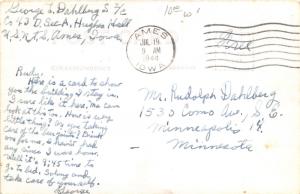 George L. Dahlberg S. 2/c
Co. 42D, Sec. A, Hughes Hall
U.S.N.T.S. Ames, Iowa
AMES
JUL 19
9 AM
1944
IOWA
Free
Rudy:
Here is a card to show
you the building I stay in.
I sure like it here. Ma can
look at this too. How is every
little thing? Are you taking
care of
me for me, I havn't
any since I was home.
Well it's 9:45 time to
go to bed, So long and
take care of yourself.
George
Mr. Rudolph Dahlberg
1530 Como Ave., S.E.
Minneapolis 14,
Minnesota